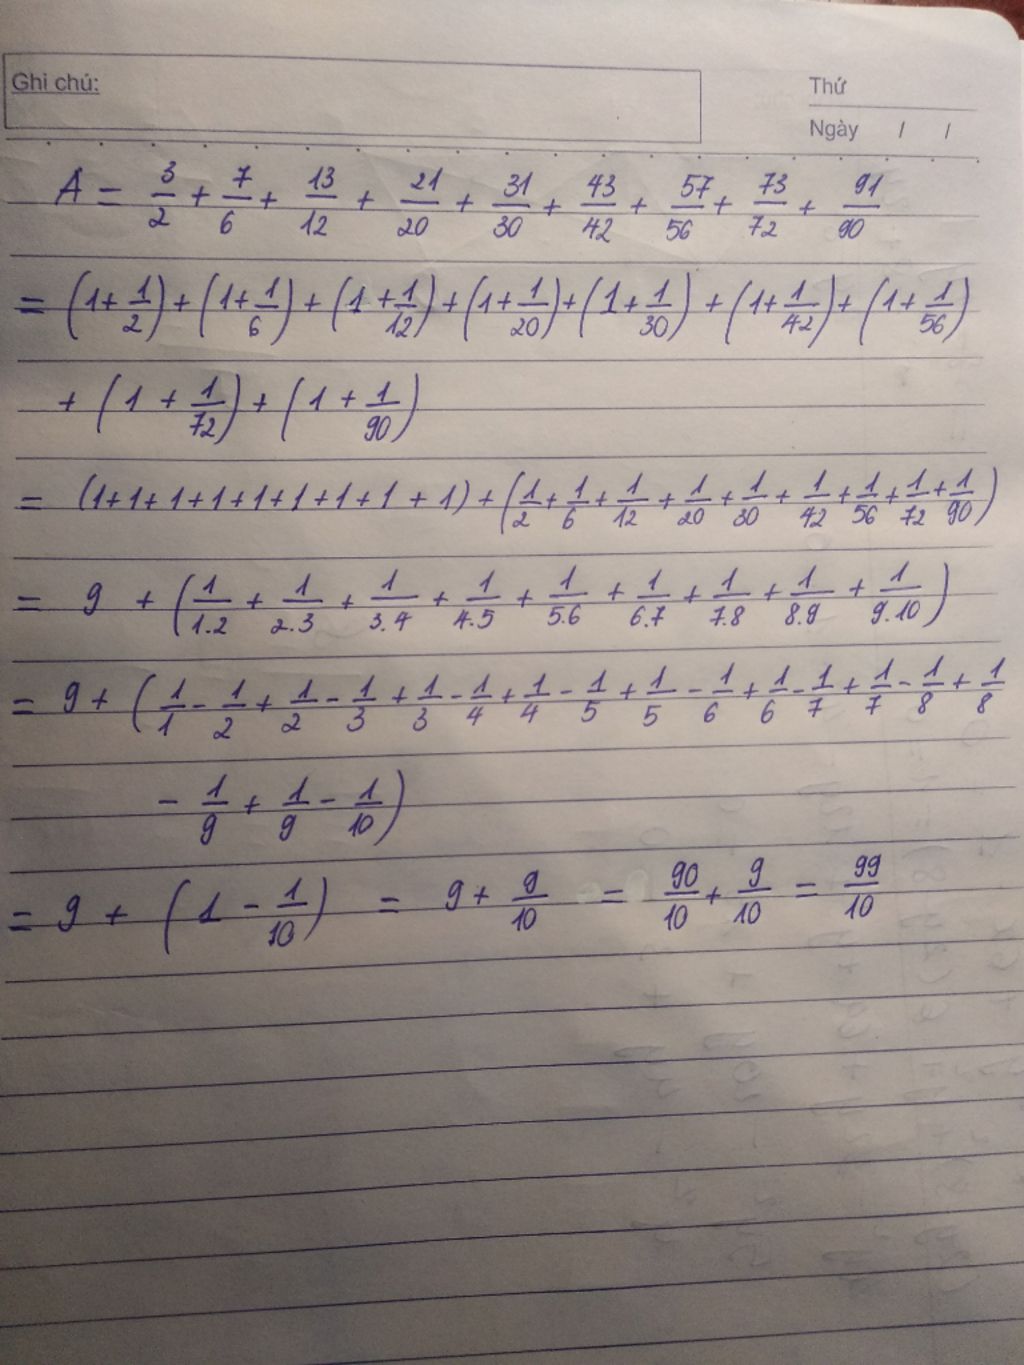 Ghi chú:
Thứ
Ngày / /
A = 3/2 + 7/6 + 13/12 + 21/20 + 31/30 + 43/42 + 57/56 + 73/72 + 91/90
= (1+1/2) + (1+1/6) + (1+1/12) + (1+1/20) + (1+1/30) + (1+1/42) + (1+1/56)
+ (1 + 1/72) + (1 + 1/90)
= (1+1+1+1+1+1+1+1+1) + (1/2 + 1/6 + 1/12 + 1/20 + 1/30 + 1/42 + 1/56 + 1/72 + 1/90)
= 9 + (1/1.2 + 1/2.3 + 1/3.4 + 1/4.5 + 1/5.6 + 1/6.7 + 1/7.8 + 1/8.9 + 1/9.10)
= 9 + (1/1 - 1/2 + 1/2 - 1/3 + 1/3 - 1/4 + 1/4 - 1/5 + 1/5 - 1/6 + 1/6 - 1/7 + 1/7 - 1/8 + 1/8
- 1/9 + 1/9 - 1/10)
= 9 + (1 - 1/10) = 9 + 9/10 = 90/10 + 9/10 = 99/10